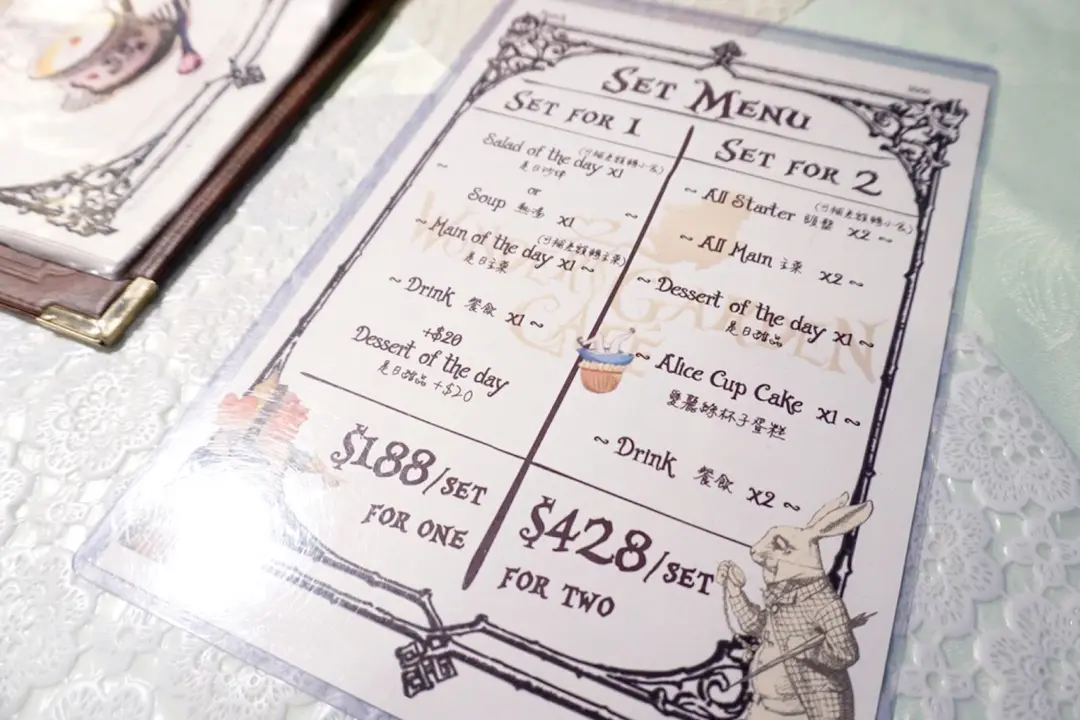 SET MENU
SET FOR 1
Salad of the day x1 (可補差額轉小食)
是日沙律
or
~ Soup 熱湯 x1 ~
~ Main of the day x1 ~ (可補差額轉主菜)
是日主菜
~ Drink 餐飲 x1 ~
+$20
Dessert of the day
是日甜品 +$20
$188/SET
FOR ONE
SET FOR 2
~ All Starter 頭盤 x2 ~ (可補差額轉小食)
~ All Main 主菜 x2 ~
~ Dessert of the day x1 ~
是日甜品
~ Alice Cup Cake x1 ~
愛麗絲杯子蛋糕
~ Drink 餐飲 x2 ~
$428/SET
FOR TWO
WONDER GARDEN
CAFE